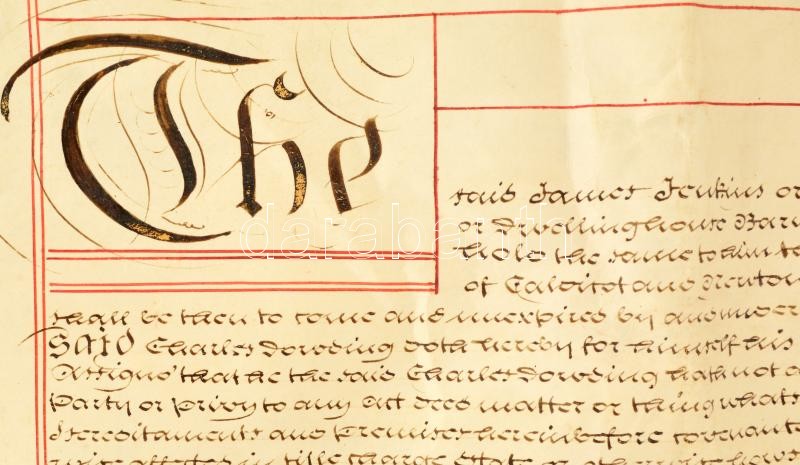 The
said James Jenkins or
or Dwellinghouse Barn
hold the same to him
of Calvicot and Newton
shall be then to come and unexpired by and under
said Charles Dowding doth hereby for himself his
Assigns that he the said Charles Dowding hath not
Party or Privy to any Act deed matter or thing whats
Hereditaments and Premises hereinbefore covenant
wise affected in title charge Estate or otherwise howso
darabanth